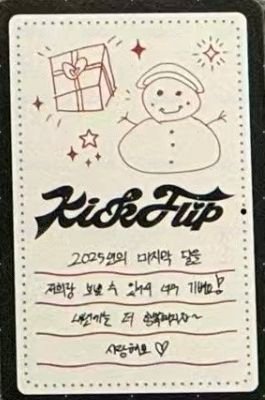 KickFlip
2025년의 마지막 달을
저희랑 보낼 수 있어 너무 기뻐요!
내년에는 더 행복하자~
사랑해요♡